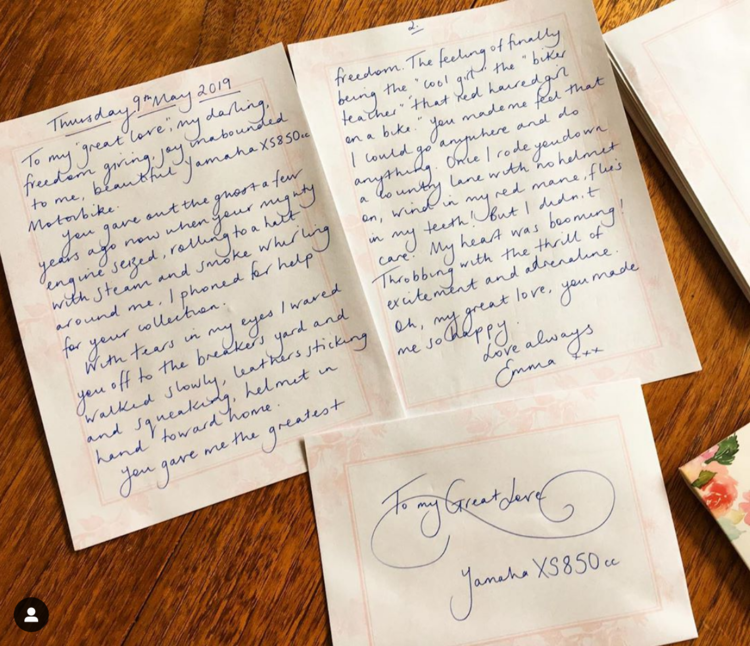 Thursday 9th May 2019
To my "great love", my darling,
freedom giving, joy inabounded
to me, beautiful Yamaha XS850cc
Motorbike.
You gave out the ghost a few
years ago now when your mighty
engine seized, rolling to a halt
with steam and smoke whirling
around me. I phoned for help
for your collection.
With tears in my eyes I waved
you off to the breakers yard and
walked slowly, leathers sticking
and squeaking, helmet in
hand toward home.
You gave me the greatest
2.
freedom. The feeling of finally
being the "cool girl" the "biker
teacher" "that red haired girl
on a bike." You made me feel that
I could go anywhere and do
anything. Once I rode you down
a country lane with no helmet
on, wind in my red mane, flies
in my teeth! But I didn't
care! My heart was booming!
Throbbing with the thrill of
excitement and adrenaline.
Oh, my great love, you made
me so happy.
Love always
Emma xxx
To my Great Love
Yamaha XS850cc